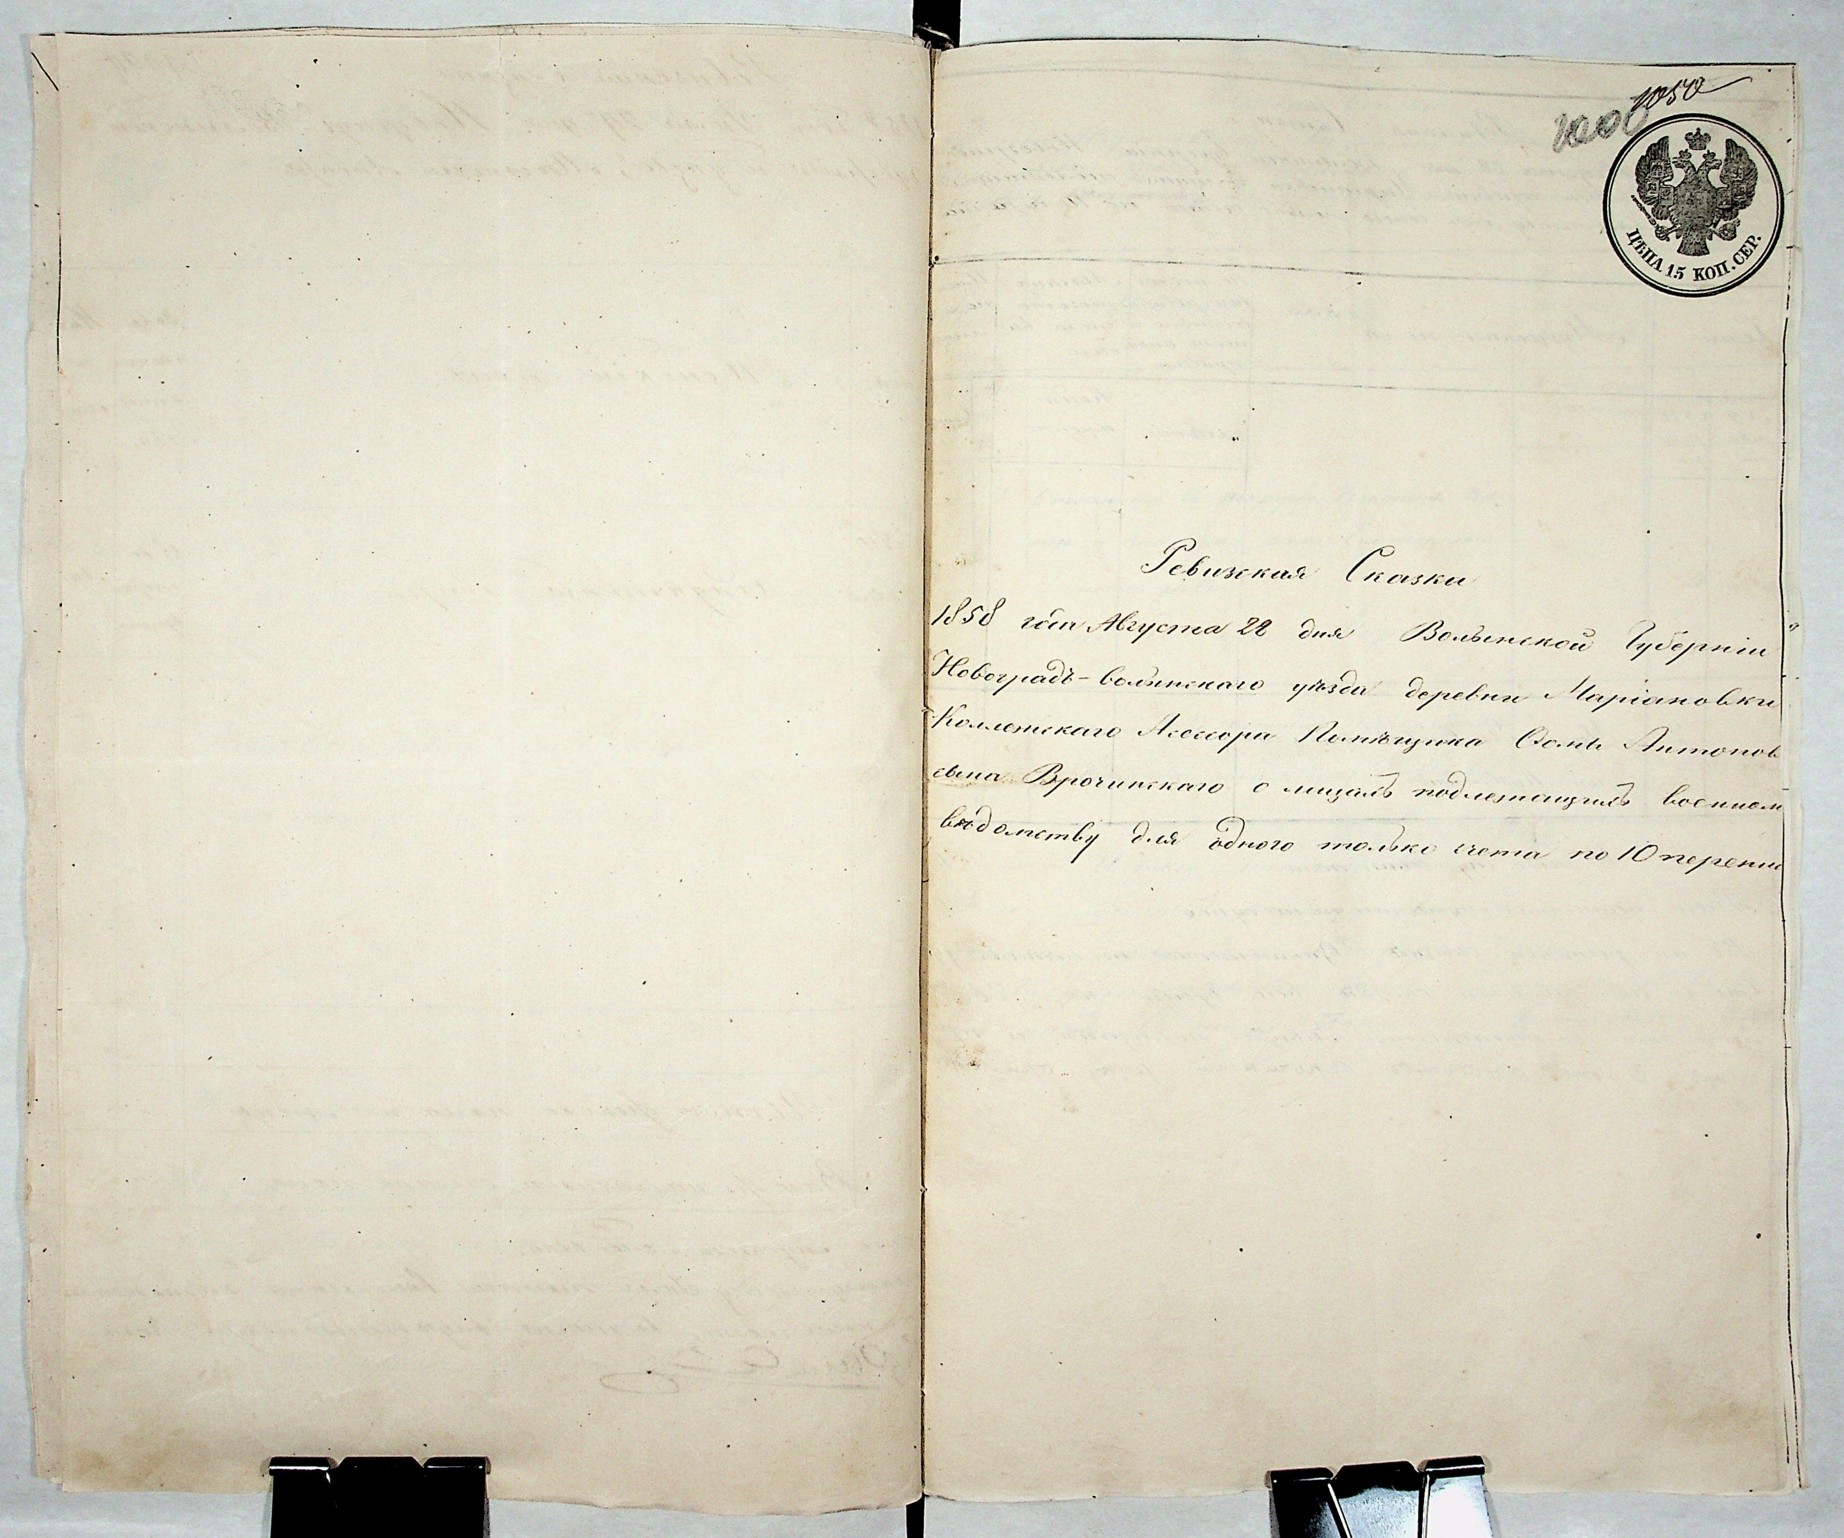 1050
1000
ЦѢНА 15 КОП. СЕР.
Ревизская Сказка
1858 года Августа 22 дня Волынской Губерніи
Новоградъ-волынскаго уѣзда деревни Маріановки
Коллежскаго Асессора Помѣщика Антонов
сына Врочинскаго о лицахъ подлежащихъ военном
вѣдомству для одного только счета по 10 перепи